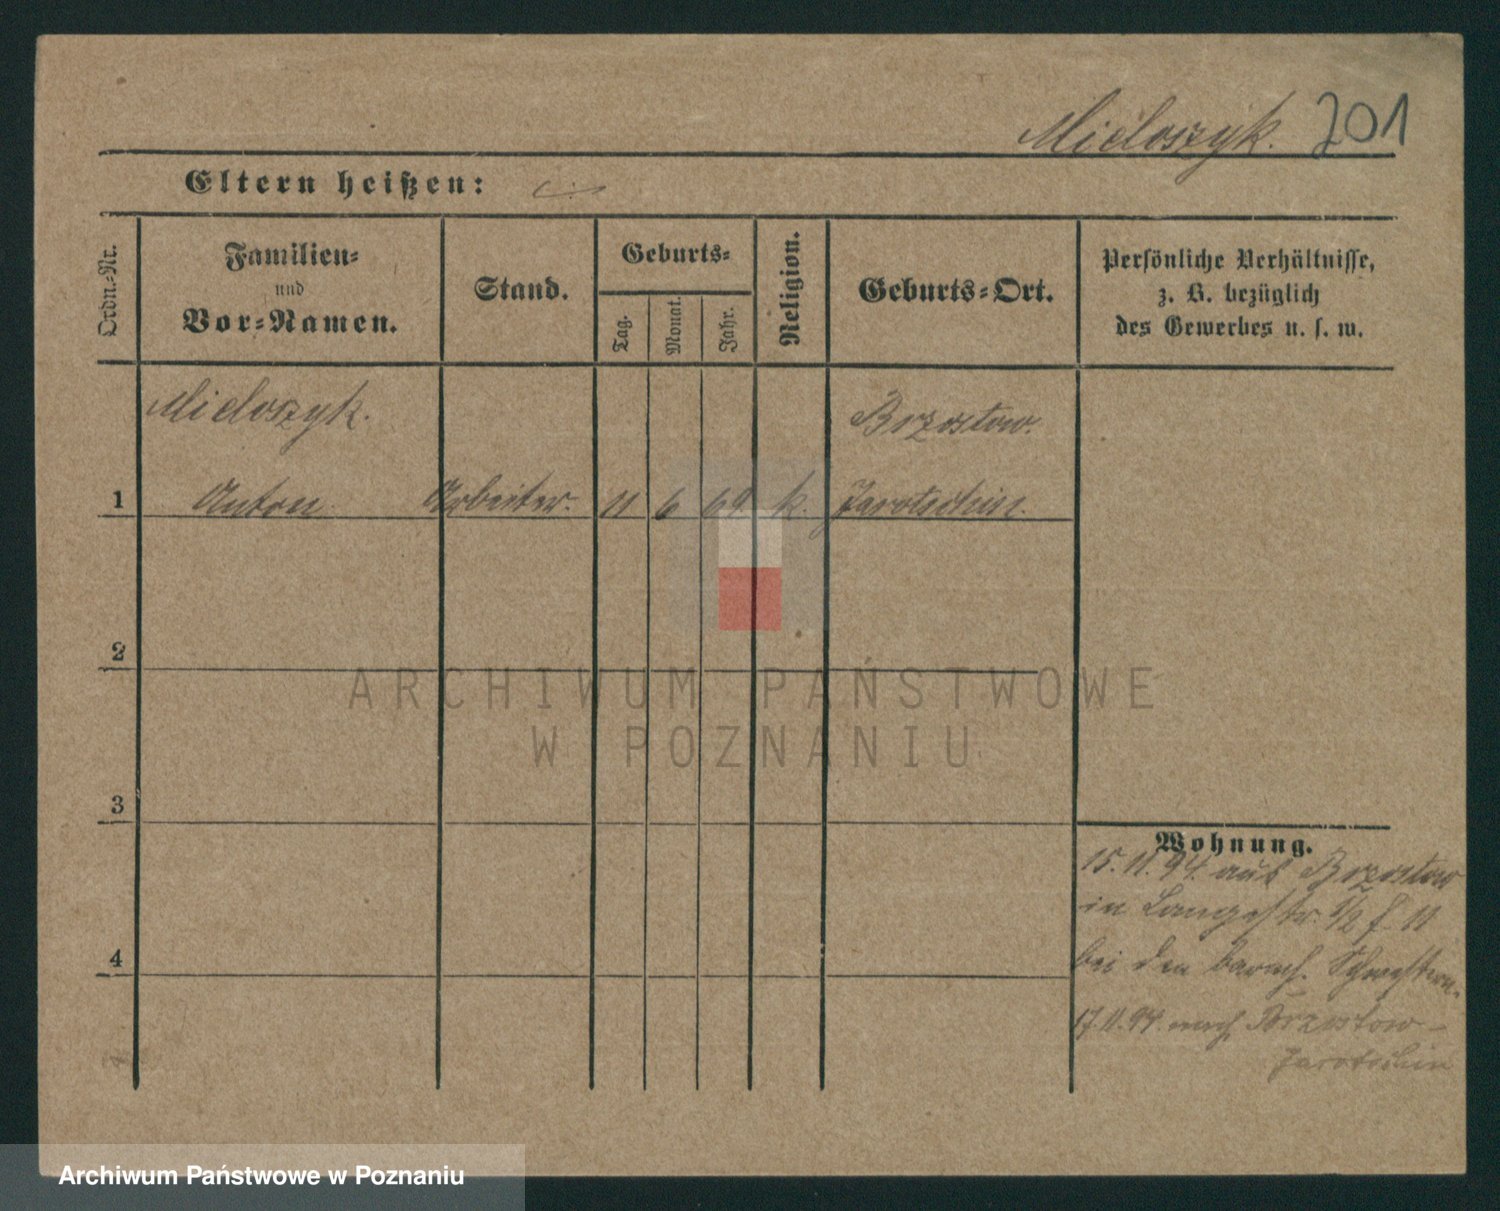 Mieloszyk. 201
Eltern heißen:
Ordn.-Nr.
Familien-
und
Vor-Namen.
Stand.
Geburts-
Tag.
Monat.
Jahr.
Religion.
Geburts-Ort.
Persönliche Verhältnisse,
z. B. bezüglich
des Gewerbes u. s. w.
Mieloszyk. Brzostow.
1 Anton Arbeiter. 11 6 69 k. Jarotschin.
2
3
4
Wohnung.
15.11.94. aus Brzostow
in Langestr. 1/2 f. 11
bei den barmh. Schwestern.
17.11.94. nach Brzostow -
Jarotschin
ARCHIWUM PAŃSTWOWE
W POZNANIU
Archiwum Państwowe w Poznaniu